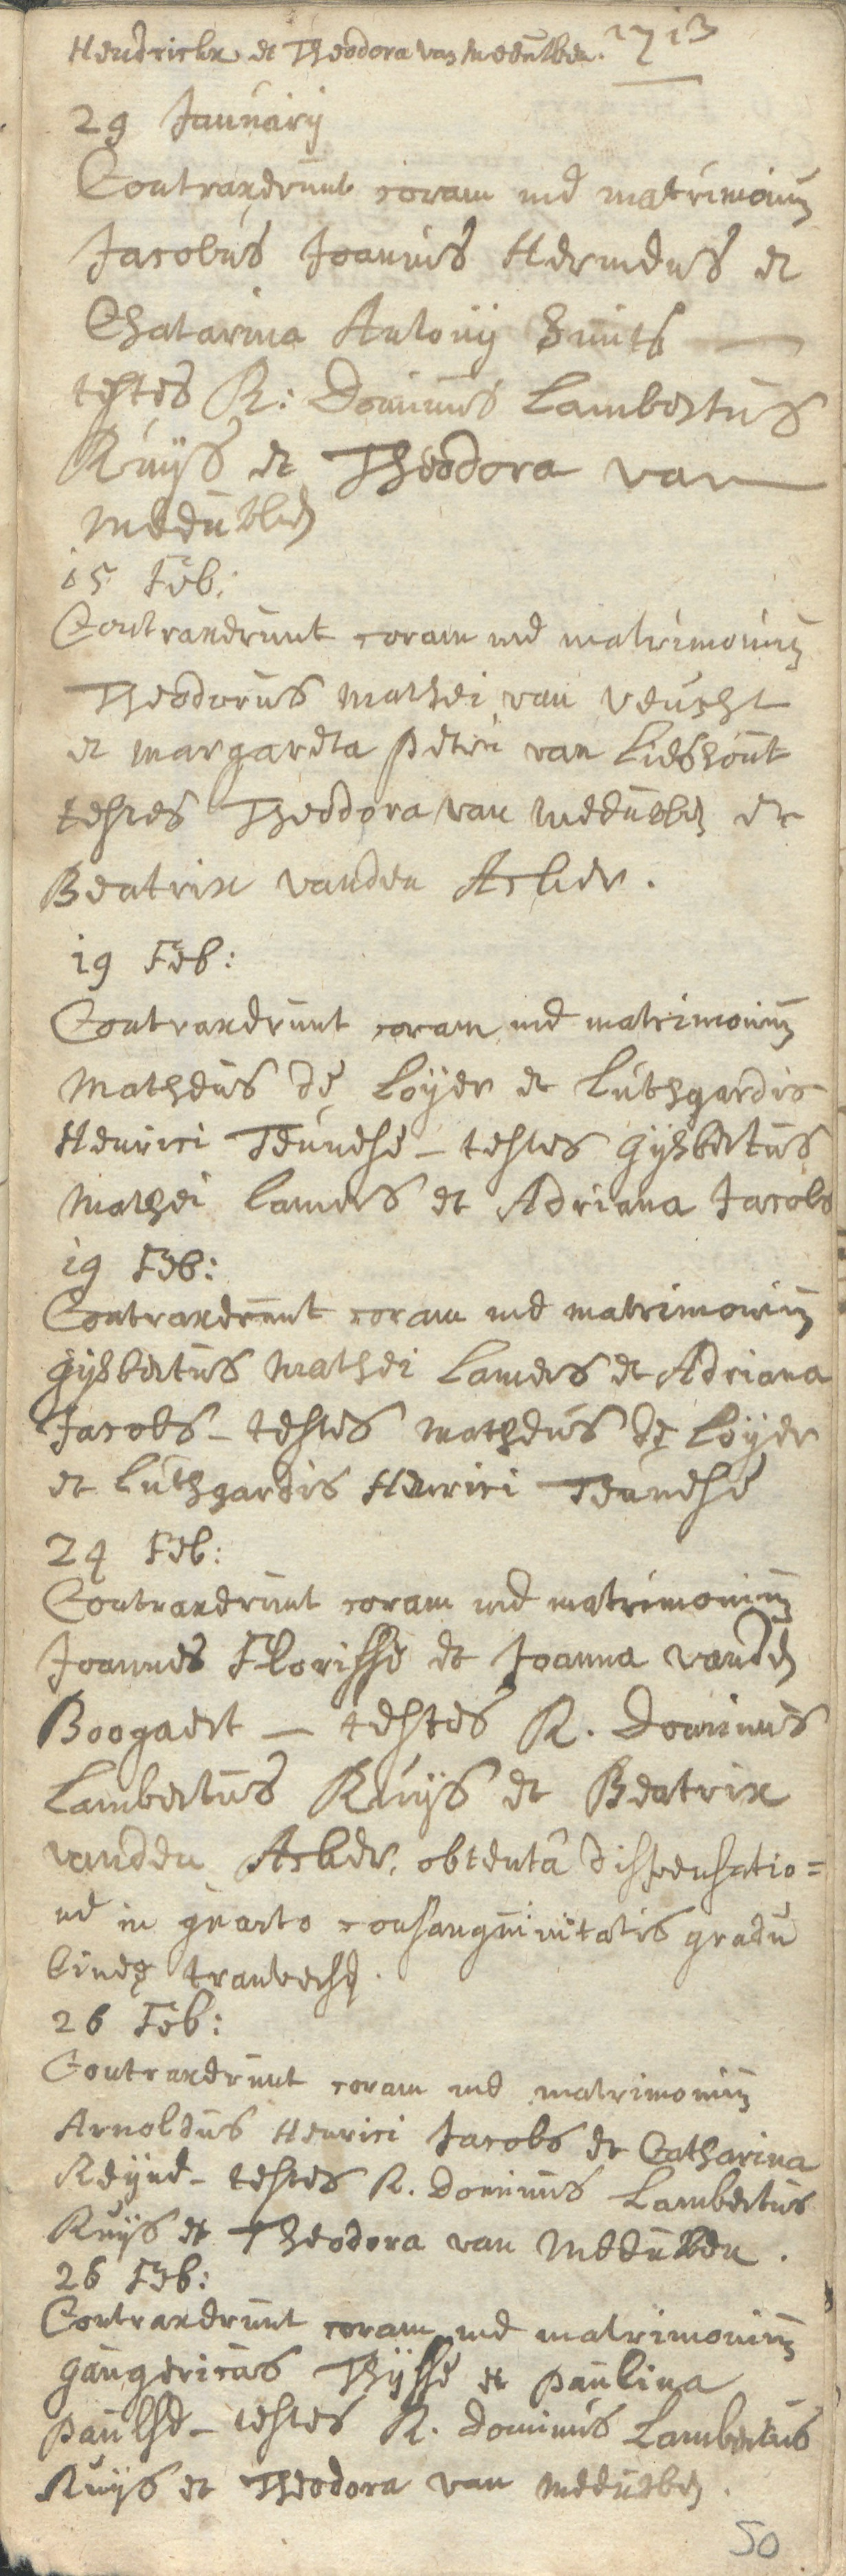 Hendrickx et Theodora van Meeuwen. 1713
29 Januarij
Contraxerunt coram me matrimonium
Jacobus Joannis Hermens et
Chatarina Antonij Smits
testes R: Dominus Lambertus
Ruijs et Theodora van

15 Feb:
Contraxerunt coram me matrimonium
Theodorus Mathei van Veucht
et Margareta Petri van Lieshout
testes Theodora van et
Beatrix vanden Acker.
19 Feb:
Contraxerunt coram me matrimonium
Matheus de Loÿer et Luthgardis
Henrici Teunesse – testes Gijsbertus
Mathei Lamers et Adriana Jacobs
19 Feb:
Contraxerunt coram me matrimonium
Gijsbertus Mathei Lamers et Adriana
Jacobs – testes Matheus de Loÿer
et Luthgardis Henrici Teunesse
24 Feb:
Contraxerunt coram me matrimonium
Joannes Florisse et Joanna vanden
Boogaert – testes R. Dominus
Lambertus Ruijs et Beatrix
vanden Acker, obtentâ dispensatio=
ne in quarto consanguinitatis gradu

26 Feb:
Contraxerunt coram me matrimonium
Arnoldus Henrici Jacobs et Catharina
Reÿne – testes R. Dominus Lambertus
Ruijs et Theodora van
26 Feb:
Contraxerunt coram me matrimonium
Gaugericus Thijsse et Paulina
Paulse – testes R. Dominus Lambertus
Ruijs et Theodora van
50